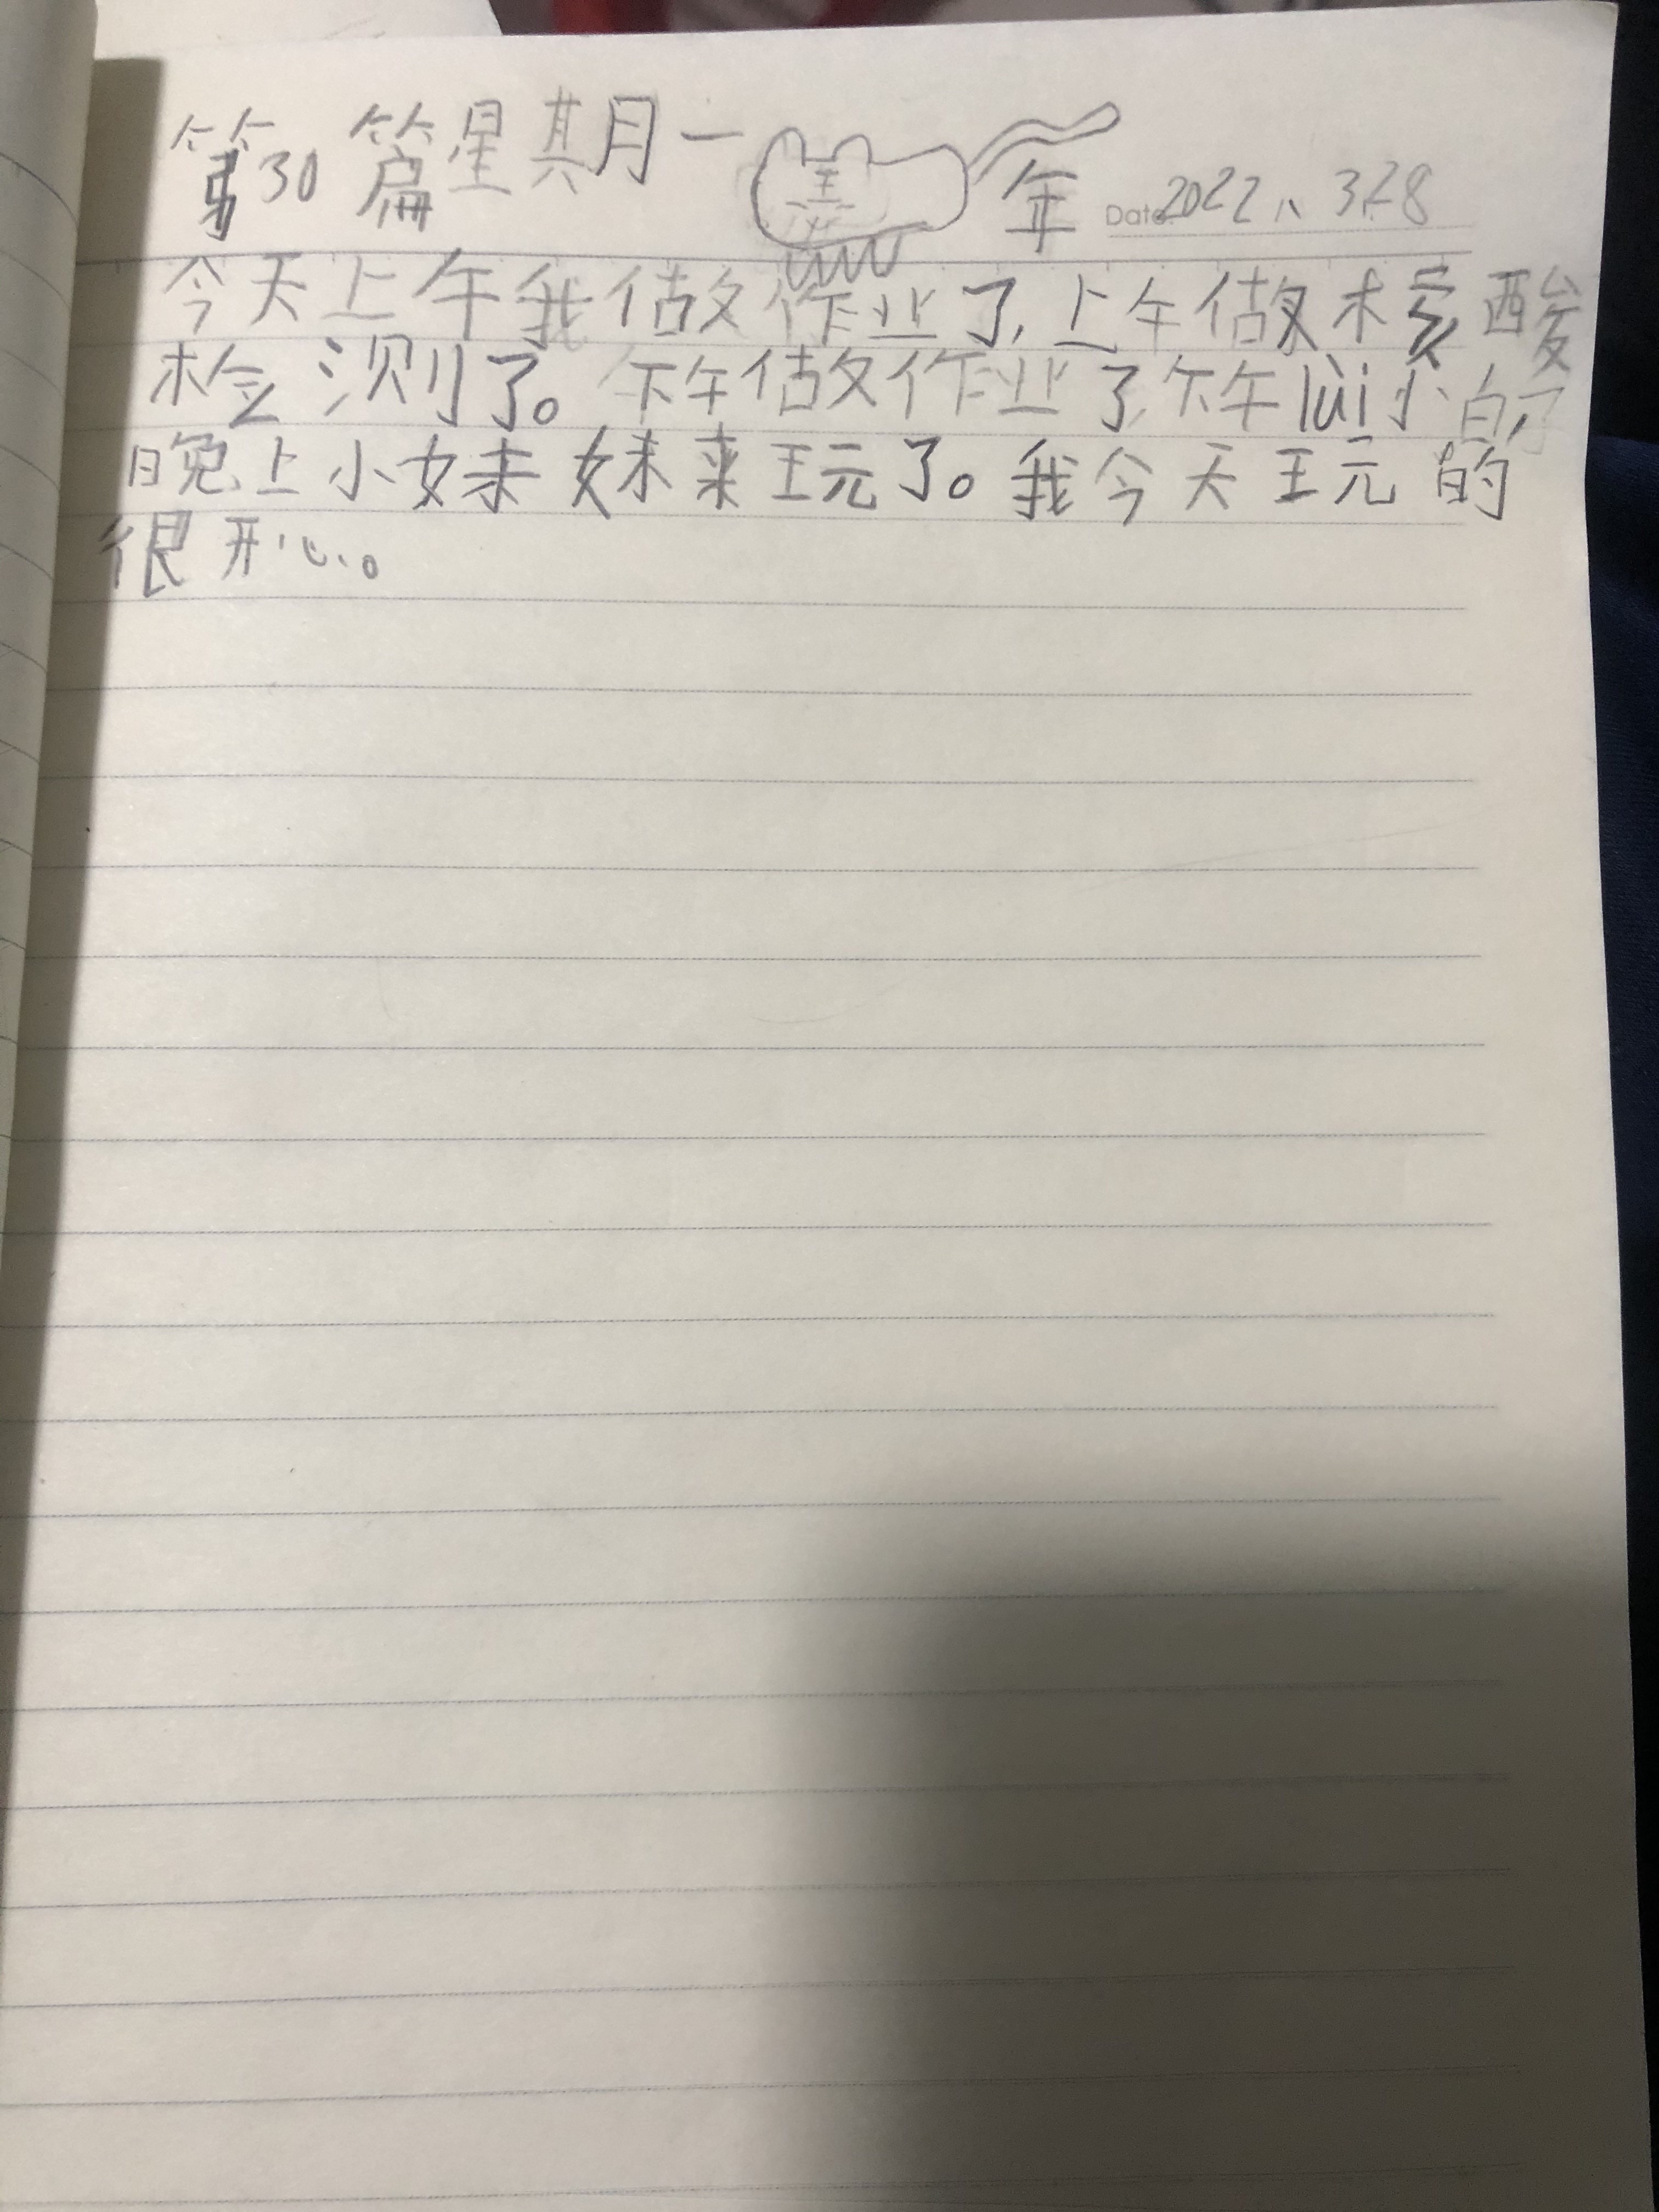 第30篇星期一 王 年 Date 2022、3.28
今天上午我做作业了,上午做核酸
检测了。下午做作业了,下午lùi小白了,
晚上小妹妹来玩了。我今天玩的
很开心。